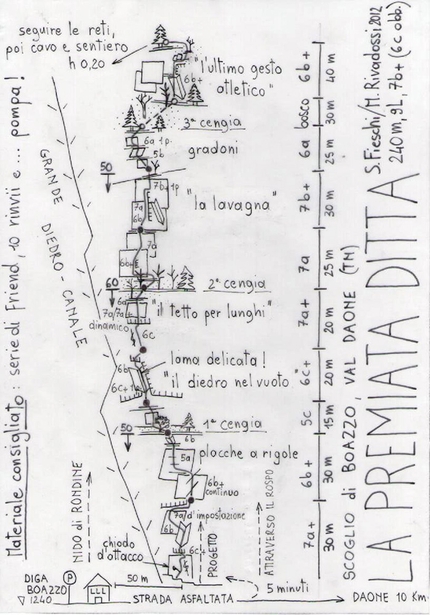 seguire le reti,
poi cavo e sentiero
h 0,20
6b+
"l'ultimo gesto
atletico"
3ª cengia
6a 1p.
5b
gradoni
50
7b+ 1p.
7a
"la lavagna"
7a
6b+
60
2ª cengia
6a
7a/7a+
dinamico
"il tetto per lunghi"
6c
lama delicata!
6b
6c+
"il diedro nel vuoto"
1ª cengia
50
6b
5a
placche a rigole
6b+
continuo
7a/d'impostazione
6c+
chiodo
d'attacco
PROGETTO
ATTRAVERSO IL ROSPO
NIDO di RONDINE
GRANDE DIEDRO - CANALE
Materiale consigliato: serie di Friend, 10 rinvii e ... pompa!
6b+
40 m
bosco
30 m
6a
25 m
7b+
30 m
7a
25 m
7a+
20 m
6c+
20 m
5c
15 m
6b+
30 m
7a+
30 m
SCOGLIO di BOAZZO, VAL DAONE (TN)
LA PREMIATA DITTA
S.Fieschi/M.Rivadossi 2012
240 m, 9L, 7b+ (6c obb.)
DIGA
BOAZZO
1240
P
50 m
5 minuti
STRADA ASFALTATA
DAONE 10 Km